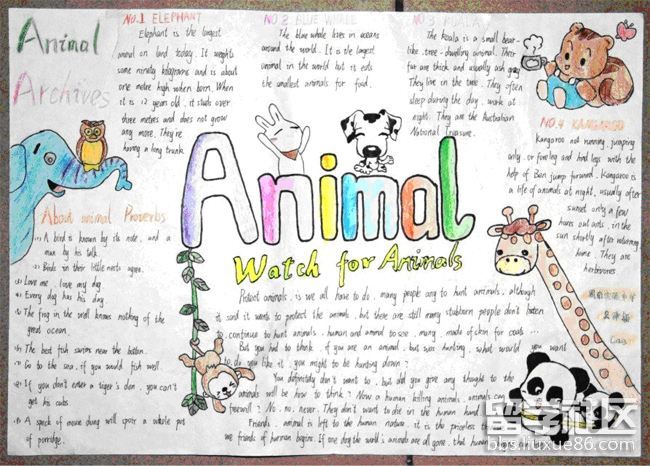 Animal
Archives
NO.1 ELEPHANT
Elephant is the largest
animal on land today. It weights
some ninety kilograms and is about
one metre high when born. When
it is 12 years old, it studs over
three meters and does not grow
any more. They're
having a long trunk.
NO.2 BLUE WHALE
The blue whale lives in oceans
around the world. It is the largest
animal in the world but it eats
the smallest animals for food.
NO.3
The koala is a small bear-
like, tree-dwelling animal. Their
fur are thick and usually ash gray
They live in the trees. They often
sleep during the day, work at
night. They are the Australian
National Treasure.
NO.4 KANGAROO
Kangaroo not running, jumping
only, or foreleg and hind legs with the
help of Ben jump forward. Kangaroo is
a life of animals at night, usually after
sunset only a few
hours out ants, in the
sun shortly after returning
home. They are
herbivores
Animal
Watch for Animals
About animal Proverbs
(1) A bird is known by its note, and a
man by his talk.
(2) Birds in their little nests agree.
(3) Love me, love my dog.
(4) Every dog has his day.
(5) The frog in the well knows nothing of the
great ocean.
The best fish swims near the bottom.
Go to the sea, if you would fish well.
If you don't enter a tiger's den, you can't
get his cubs.
A speck of mouse dung will spoil a whole pot
of porridge.
Protect animals, is we all have to do, many people ang to hunt animals, although
it said it wants to protect the animals, but there are still many stubborn people don't listen
to, continue to hunt animals, human and animal to see, many, made of skin for coats ...
But you had to think, if you are an animal, but was hunting, what would you want
to do you like it, you might be hunting down?
You definitely don't want to, but did you give any thought to the
animals will be how to think? Now a human killing animals, animals can
farewell? No, no, never. They don't want to die in the human hand
Friends, animal is left to the human nature, it is the priceless
we friends of human begins. If one day the world's animals are all gone, that human
留学社区
bbs.liuxue86.com